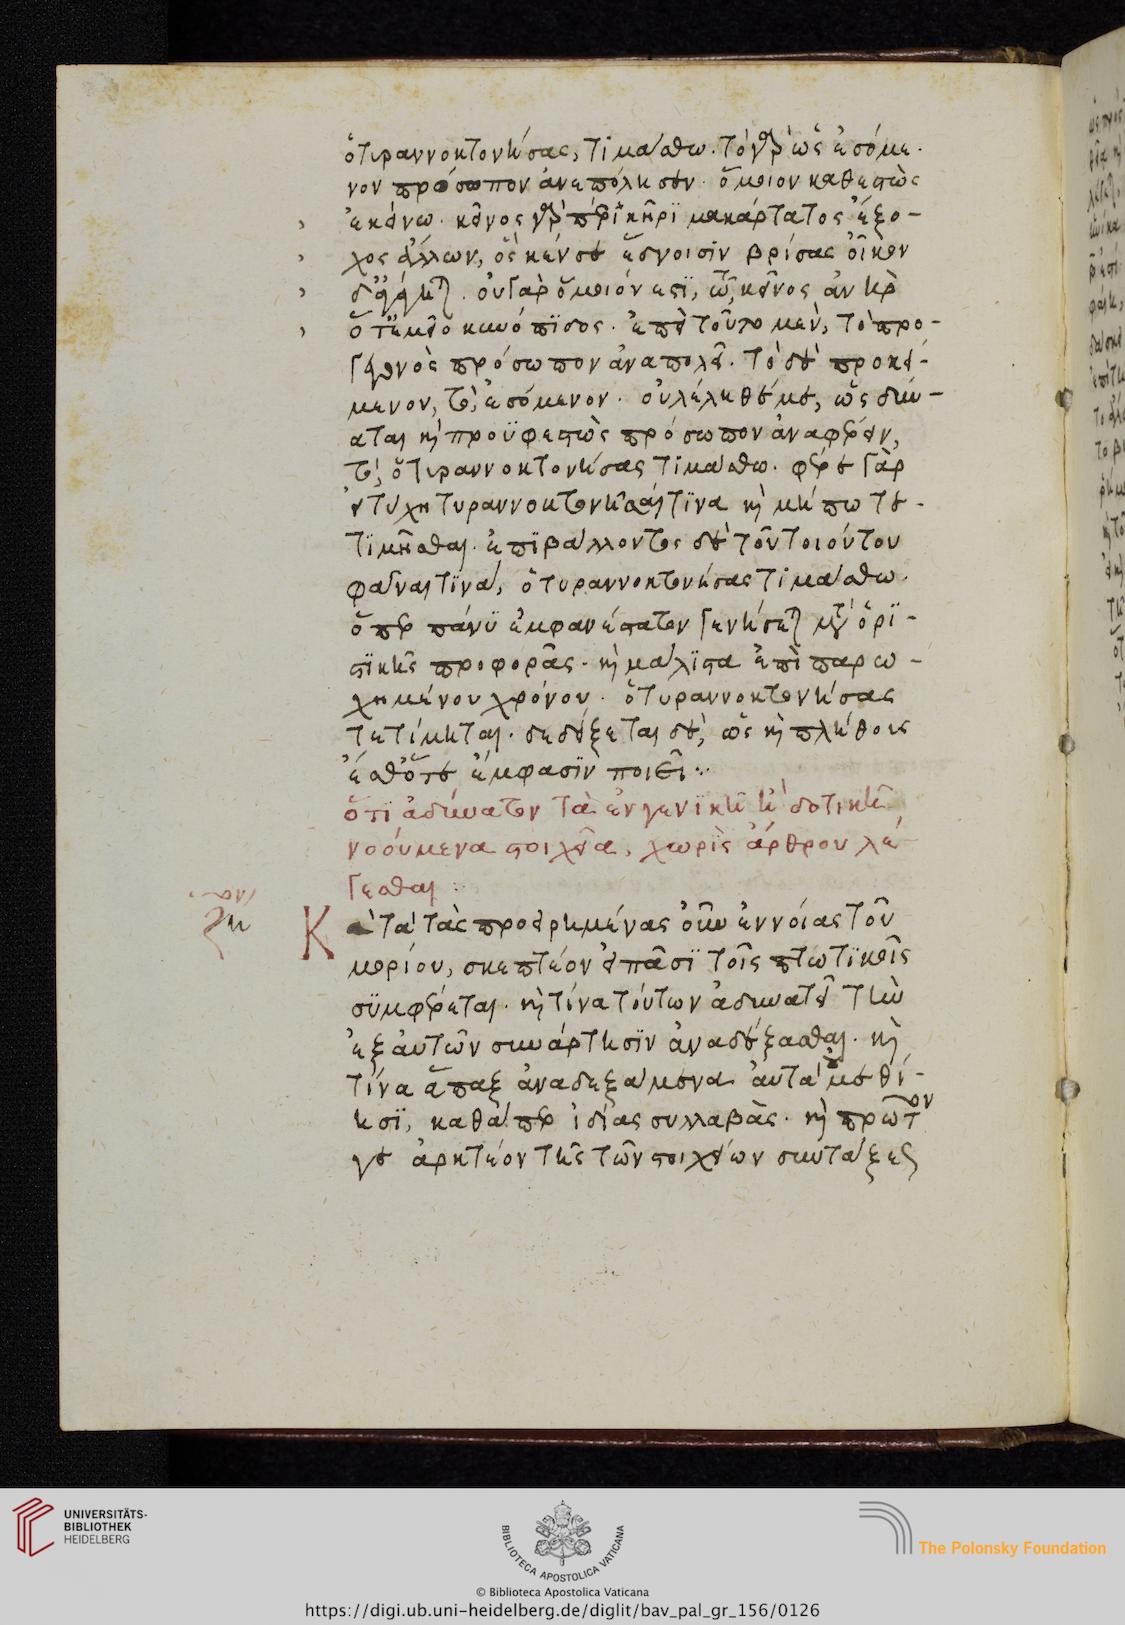 ὁ τυραννοκτονήσας, τιμάσθω. τὸ γὰρ ὡς ἐσόμε-
νον πρόσωπον ἀνεπόλησεν. ὅμοιον καθεστὼς
ἐκείνω. κεῖνος γὰρ περὶ κῆρϊ μακάρτατος ἔξο-
χος ἄλλων, ὅς κέν σε ἔδνοισϊν βρίσας οἶκον
δὲ ἀγάγηται. οὐ γὰρ ὅμοιόν ἐστϊ, τῶ, κεῖνος ἀνὴρ
ὅτ' ἐμεῖο κυνόπϊσος. ἐπεὶ τοῦτο μὲν, τὸ προ-
γεγονὸς πρόσωπον ἀναπολεῖ. τὸ δὲ προκεί-
μενον, τὸ, ἐσόμενον. οὐ λέληθέ με, ὡς δύν-
αται καὶ προϋφεστὼς πρόσωπον ἀναφέρειν,
τὸ, ὁ τυραννοκτονήσας τιμάσθω. φέρε γὰρ
εἰ τύχη τυραννοκτονῆσαί τϊνα καὶ μήπω τε-
τϊμῆσθαι. ἐπϊβάλλοντος δὲ τοῦ τοιούτου
φάναι τϊνά, ὁ τυραννοκτονήσας τιμάσθω.
ὅπερ πάνϋ ἐμφανέστατον γενήσεται μετὰ ὁρϊ-
στϊκῆς προφορᾶς. καὶ μάλϊστα ἐπὶ παρω-
χημένου χρόνου. ὁ τυραννοκτονήσας
τετίμηται. δεδείξεται δὲ, ὡς καὶ πλήθους
ἔσθ' ὅτε ἔμφασϊν ποιεῖ:
ὅτϊ ἀδύνατον τὰ ἐν γενϊκῆ ἢ δοτικῆ
νοούμενα στοιχεῖα, χωρὶς ἄρθρου λέ-
γεσθαι:
Κατὰ τὰς προειρημένας οὖν ἐννοίας τοῦ
μορίου, σκεπτέον εἰ πᾶσϊ τοῖς πτωτϊκοῖς
σϋμφέρεται. καὶ τίνα τούτων ἀδυνατεῖ τὴν
ἐξ αὐτῶν συνάρτησϊν ἀναδέξασθαι. καὶ
τίνα ἅπαξ ἀναδεξάμενα αὐτὰ οὐ μεθί-
ησϊ, καθάπερ ἰδίας συλλαβὰς. καὶ πρῶτον
γε ἀρκτέον τῆς τῶν στοιχείων συντάξεως
UNIVERSITÄTS-
BIBLIOTHEK
HEIDELBERG
BIBLIOTECA APOSTOLICA VATICANA
The Polonsky Foundation
© Biblioteca Apostolica Vaticana
https://digi.ub.uni-heidelberg.de/diglit/bav_pal_gr_156/0126